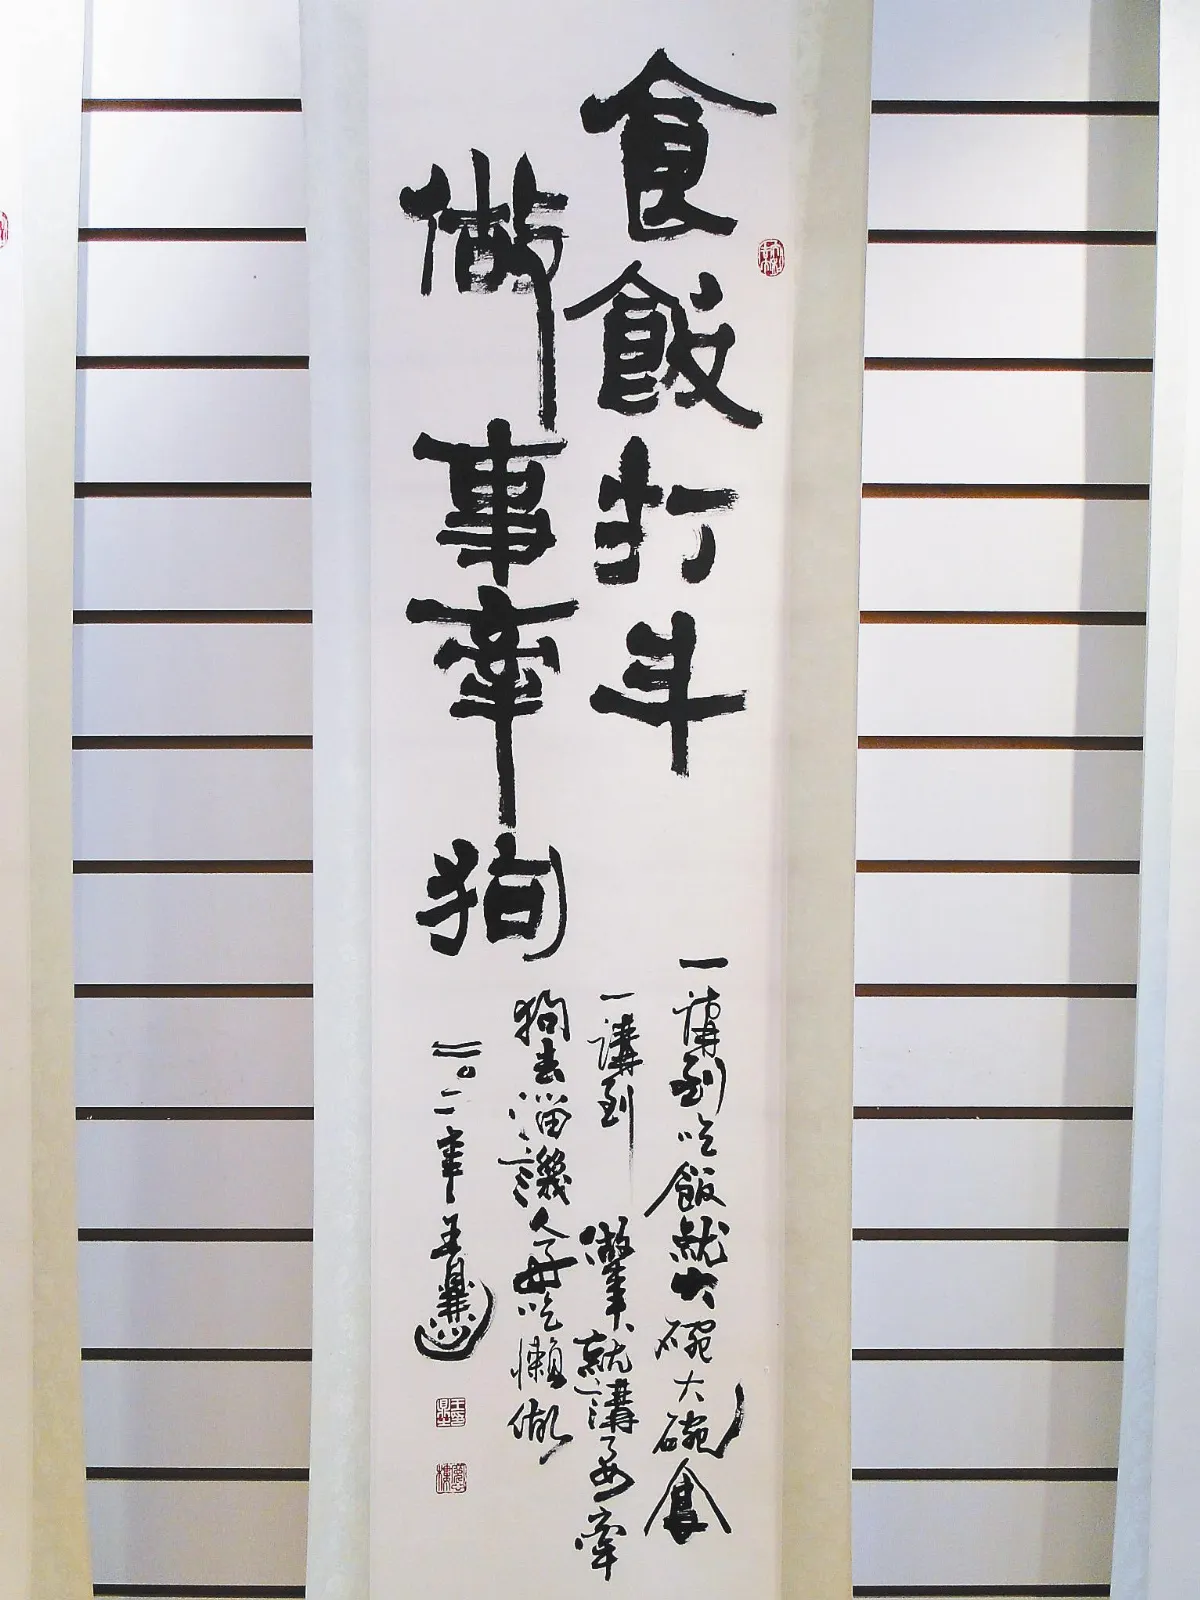 食飯打斗
做事牽狗
一講到吃飯就大碗大碗食
一講到做事就講了要牽
狗去溜譏人好吃懶做
二〇一二年王鼎